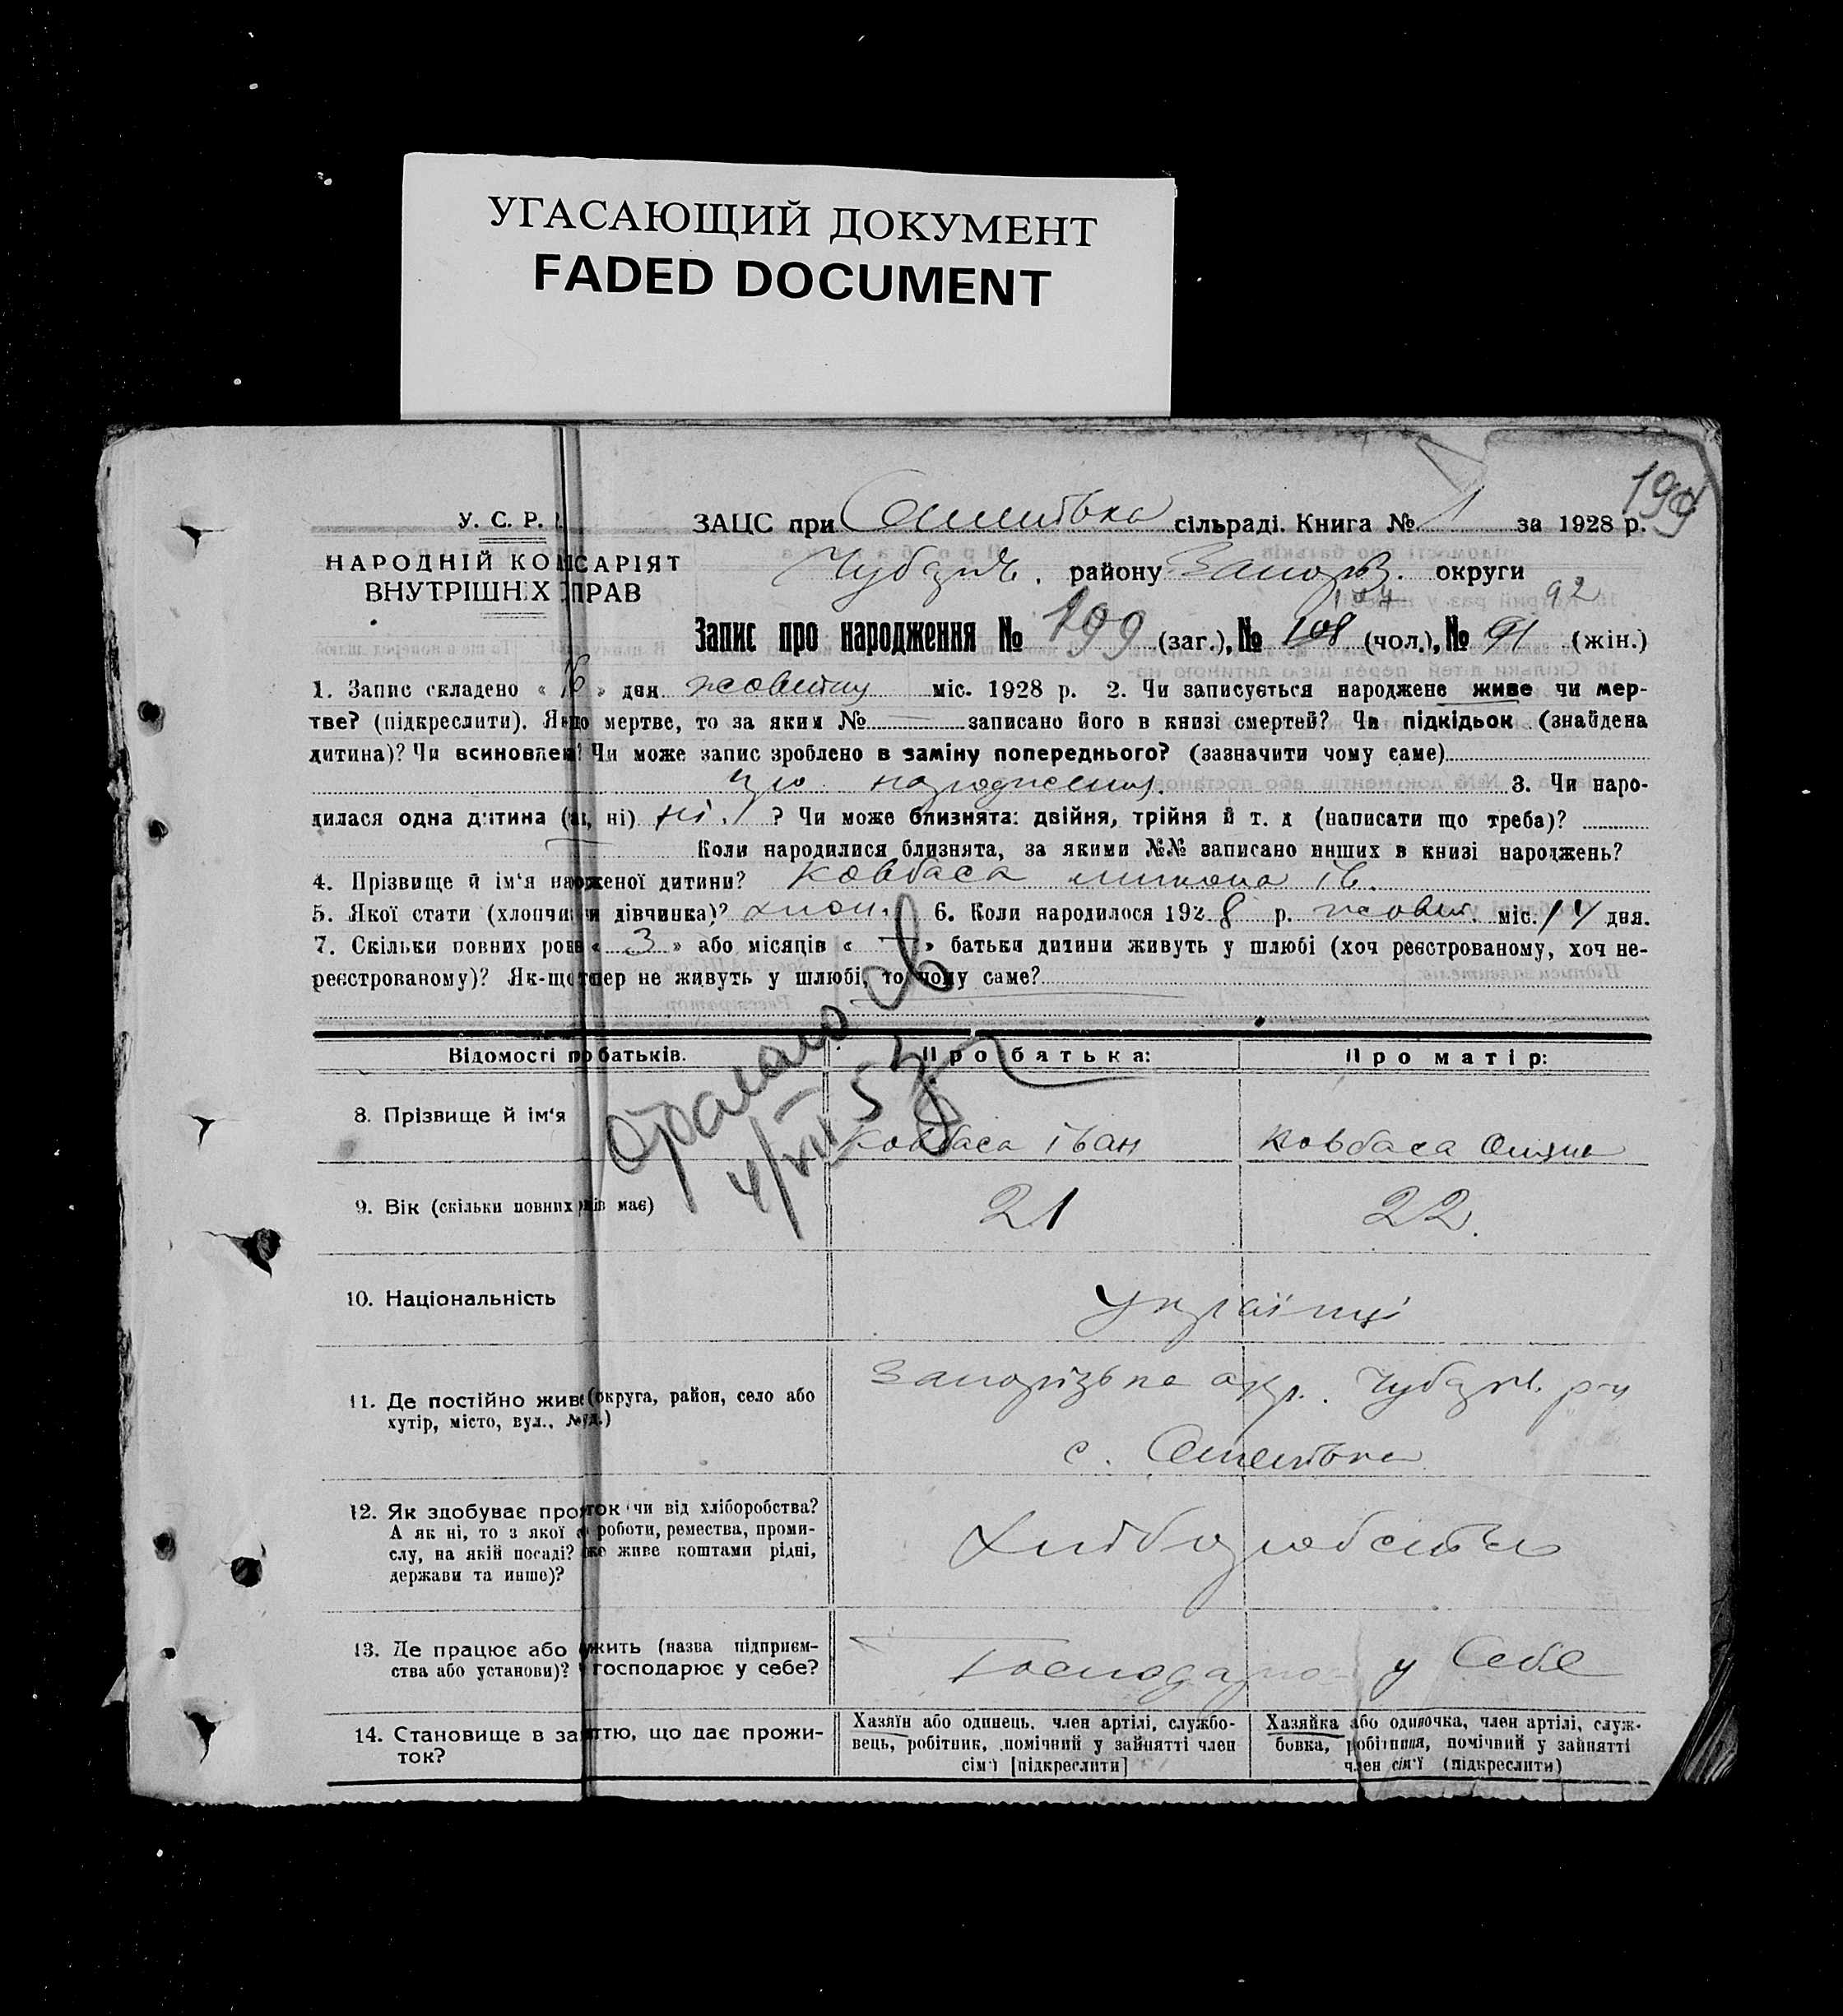 УГАСАЮЩИЙ ДОКУМЕНТ
FADED DOCUMENT
199
У. С. Р. Р.
НАРОДНІЙ КОМІСАРІЯТ
ВНУТРІШНІХ СПРАВ
ЗАЦС при сільраді. Книга № 1 за 1928 р.
Чубарів. району Запоріз. округи
104 92
Запис про народження № 199 (заг.), № 108 (чол.), № 91 (жін.)
1. Запис складено « 16 » дня жовтня міс. 1928 р. 2. Чи записується народжене живе чи мер-
тве? (підкреслити). Якщо мертве, то за яким № — записано його в книзі смертей? Чи підкідьок (знайдена
дитина)? Чи всиновлен? Чи може запис зроблено в заміну попереднього? (зазначити чому саме)
про народження. 3. Чи наро-
дилася одна дитина (так, ні) ні. ? Чи може близнята: двійня, трійня й т. д (написати що треба)?
Коли народилися близнята, за якими №№ записано инших в книзі народжень?
4. Прізвище й ім'я народженої дитини? Ковбаса Ів.
5. Якої стати (хлопчик чи дівчинка)? хлоп. 6. Коли народилося 1928 р. жовт. міс. 14 дня.
7. Скільки повних років « 3 » або місяців « — » батьки дитини живуть у шлюбі (хоч реєстрованому, хоч не-
реєстрованому)? Як-що тепер не живуть у шлюбі, то чому саме?
Відомості про батьків. Про батька: Про матір:
8. Прізвище й ім'я Ковбаса Іван Ковбаса
9. Вік (скільки повних років має) 21 22.
10. Національність українці
11. Де постійно живе (округа, район, село або Запорізька окр. Чубарів. р-н
хутір, місто, вул., № д.) с.
12. Як здобуває прожиток (чи від хліборобства?
А як ні, то з якої роботи, ремества, проми-
слу, на якій посаді? живе коштами рідні, Хліборобством
держави та инше)?
13. Де працює або служить (назва підприєм-
ства або установи)? господарює у себе? Господарює у себе
14. Становище в занятттю, що дає прожи-
ток?
Хазяїн або одинець, член артілі, службо-
вець, робітник, помічний у зайнятті член
сім'ї [підкреслити]
Хазяйка або одиночка, член артілі, служ-
бовка, робітниця, помічний у зайнятті
член сім'ї (підкреслити)